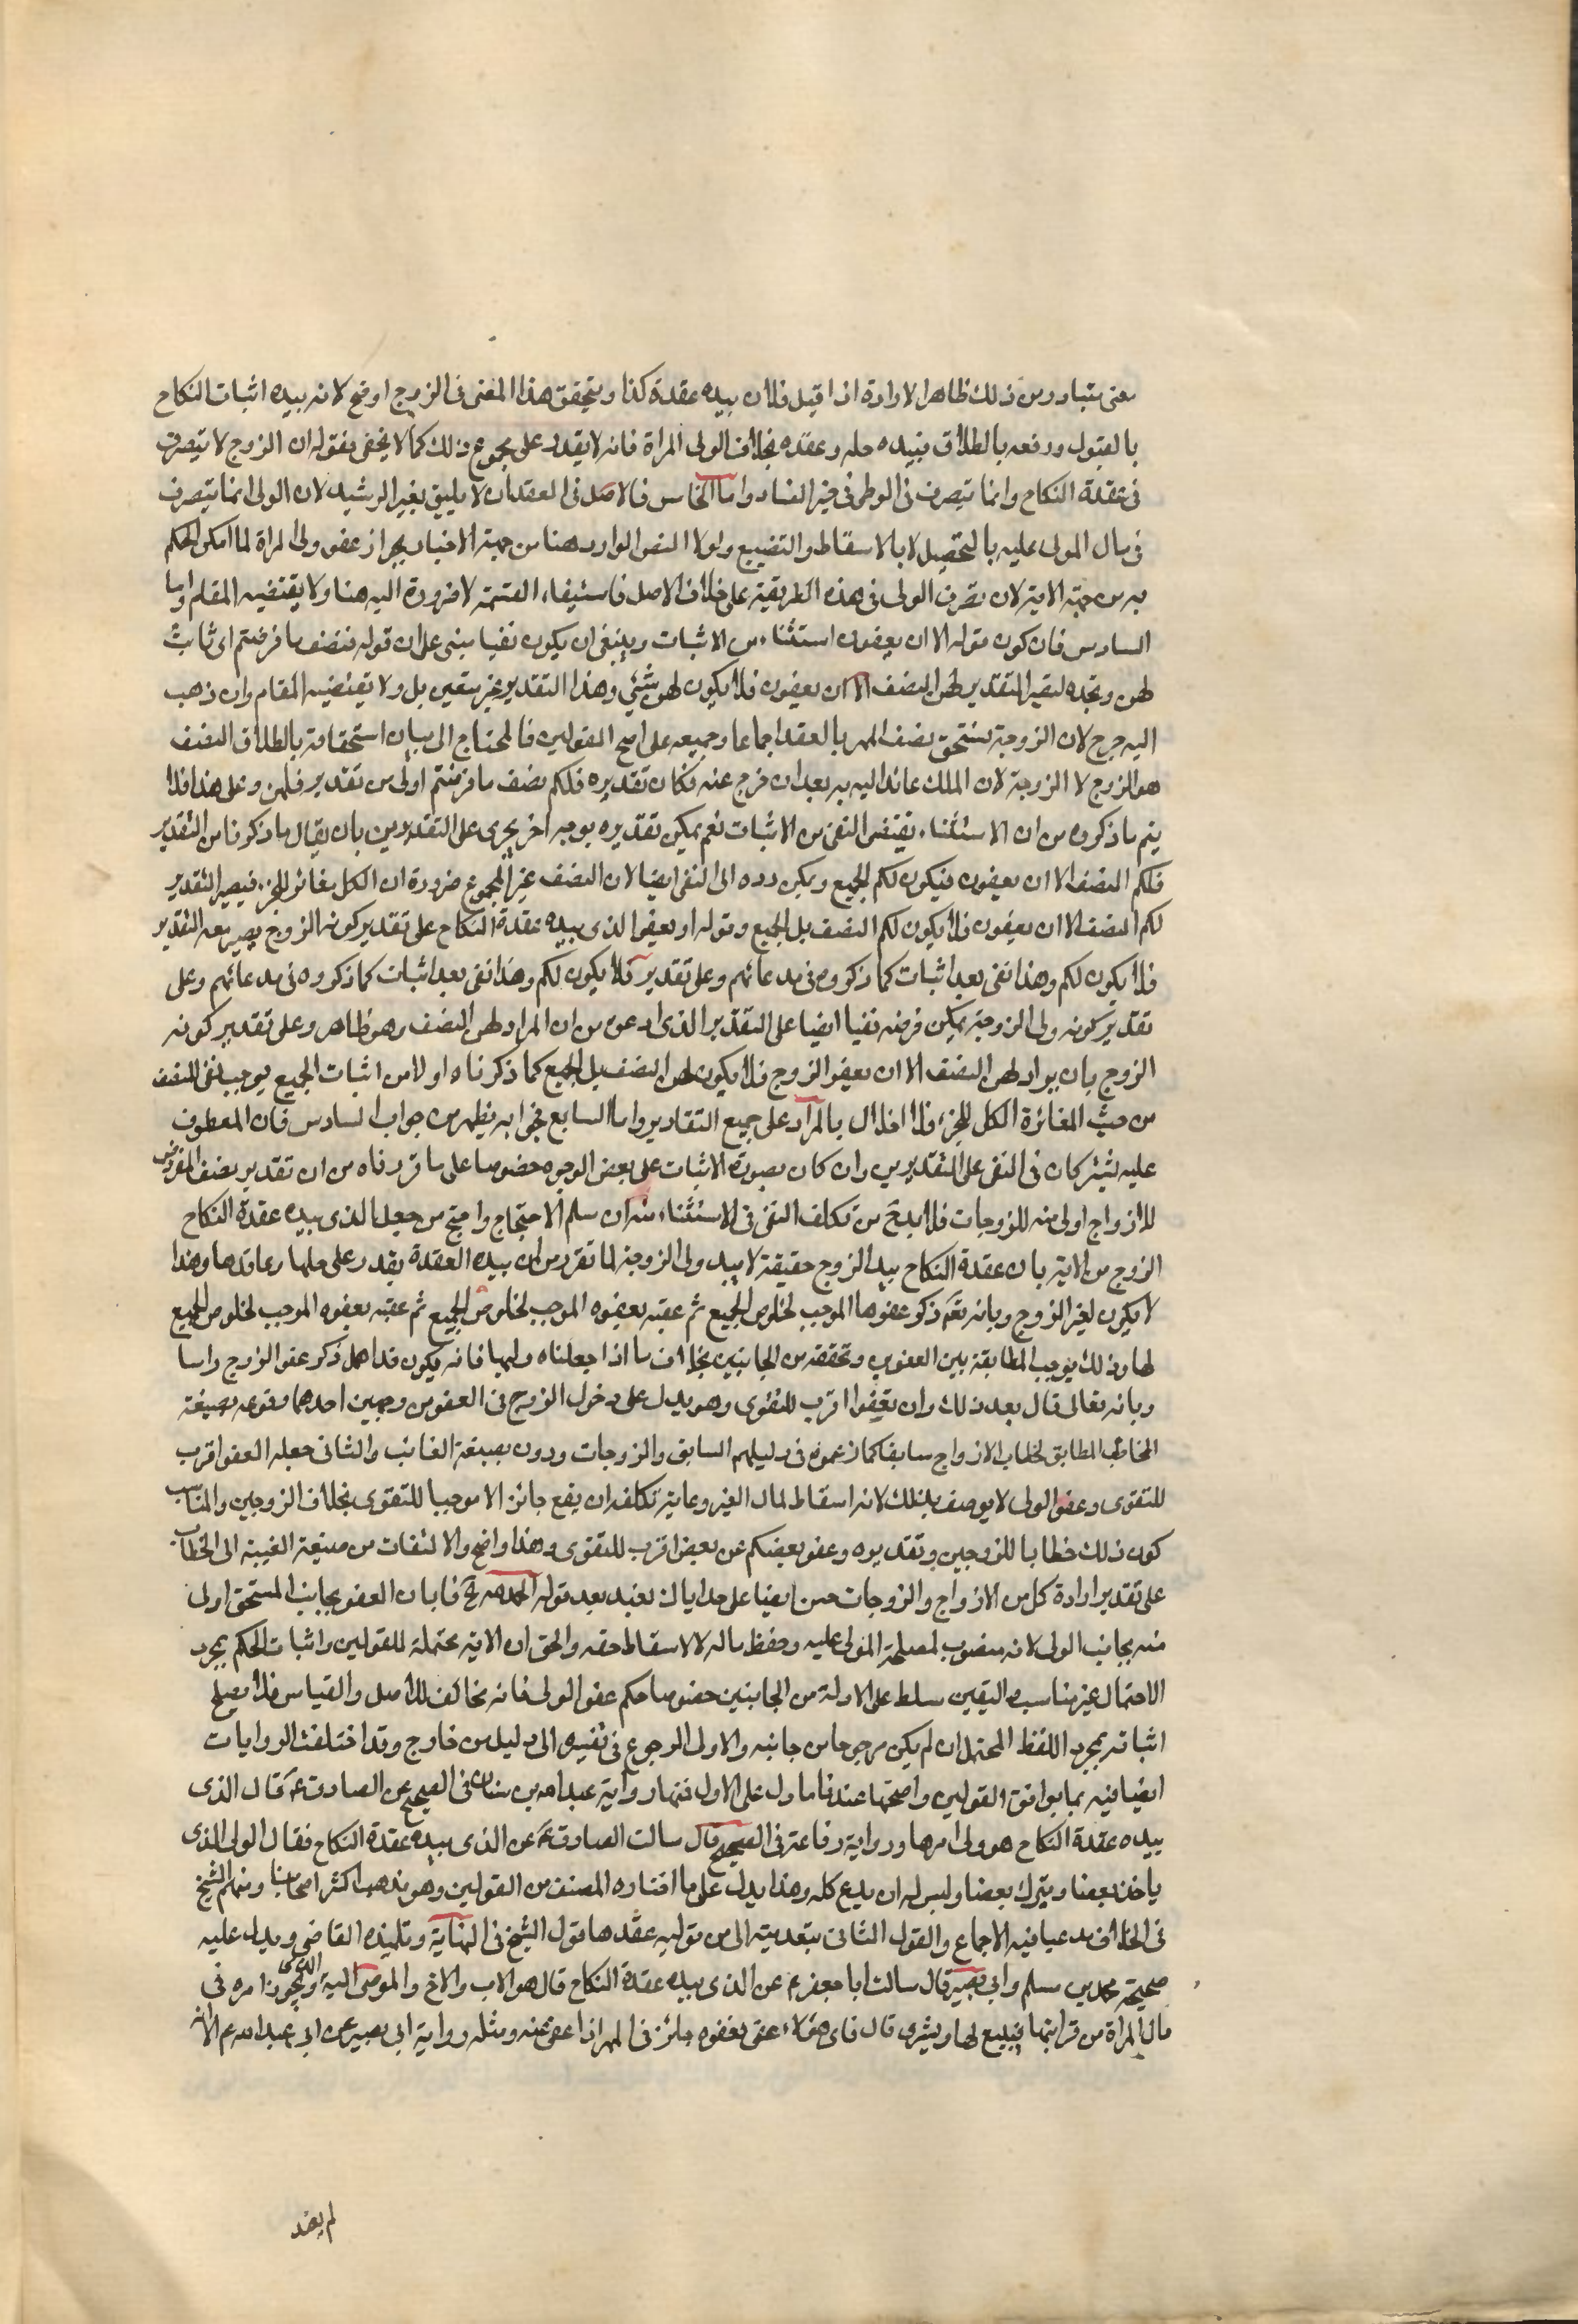 معنى متبادر ومن ذلك ظاهر الارادة اذا قيل فلان بيده عقدة كذا ويتحقق هذا المعنى فى الزوج اوضح لانه بيده اثبات النكاح
بالقبول ورفعه بالطلاق فبيده حله وعقده بخلاف الولى المراة فانه لا يقدر على مجموع ذلك كما لا يخفى فقوله ان الزوج لا يتصرف
فى عقدة النكاح وانما يتصرف فى الوطى فى حيز الفساد واما الخامس فالاصل فى العقد ان لا يليق بغير الرشيد لان الولى انما يتصرف
فى مال المولى عليه بالتحصيل لا بالاسقاط والتضييع ولولا النص الوارد هنا من جهة الاخبار بجواز عفو ولى المراة لما امكن الحكم
به من جهة الاية لان تصرف الولى فى هذه الطريقة على خلاف الاصل فاستيفاء القسمة لا ضرورة اليه هنا ولا يقتضيه المقام واما
السادس فان كون قوله الا ان يعفون استثناء من الاثبات وينبغى ان يكون نفيا مبنى على ان قوله فنصف ما فرضتم اى ثابت
لهن وبحده ليصير التقدير لهن النصف الا ان يعفون فلا يكون لهن شئ وهذا التقدير غير متعين بل ولا يقتضيه المقام وان ذهب
اليه جرح لان الزوجة تستحق نصف المهر بالعقد اجماعا وجميعه على اصح القولين فالمحتاج الى بيان استحقاقه بالطلاق النصف
هو الزوج لا الزوجة لان الملك عائد اليه به بعد ان خرج عنه فكان تقديره فلكم نصف ما فرضتم اولى من تقدير فلهن وعلى هذا فلا
يتم ما ذكروه من ان الاستثناء يقتضى النفى من الاثبات نعم يمكن تقديره بوجه اخر يجرى على التقديرين بان يقال ما ذكرنا من التقدير
فلكم النصف الا ان يعفون فيكون لكم الجميع ويمكن رده الى النفى ايضا لان النصف غير المجموع ضرورة ان الكل مغائر للجزء فيصير التقدير
لكم النصف الا ان يعفون فلا يكون لكم النصف بل الجميع وقوله او يعفو الذى بيده عقدة النكاح على تقدير كونه الزوج يصير معه التقدير
فلا يكون لكم وهذا نفى بعد اثبات كما ذكروه فى مدعائهم وعلى تقدير فلا يكون لكم وهذا نفى بعد اثبات كما ذكروه فى مدعائهم وعلى
تقدير كونه ولى الزوجة يمكن فرضه نفيا ايضا على التقدير الذى ادعى من ان المراد لهن النصف وهو ظاهر وعلى تقدير كونه
الزوج بان يراد لهن النصف الا ان يعفو الزوج فلا يكون لهن النصف بل الجميع كما ذكرناه اولا من اثبات الجميع يوجب نفى النصف
من حيث المغائرة الكل للجزء فلا اخلال بالمراد على جميع التقادير واما السابع فجوابه يظهر من جواب السادس فان المعطوف
عليه يشتركان فى النفى على التقديرين وان كان بصورة الاثبات على بعض الوجوه خصوصا على ما قررناه من ان تقدير نصف المفروض
للازواج اولى منه للزوجات فلا بد ح من تكلف النفى فى الاستثناء منه ان سلم الاحتجاج واحتج من جعل الذى بيده عقدة النكاح
الزوج من الاية بان عقدة النكاح بيد الزوج حقيقة لا بيد ولى الزوجة لما تقرر من ان بيده العقدة يقدر على حلها وعاقدها وهذا
لا يكون لغير الزوج وبانه تع ذكر عفوها الموجب لخلوص الجميع ثم عقبه بعفوه الموجب لخلوص الجميع ثم عقبه بعفوه الموجب لخلوص الجميع
لها وذلك يوجب المطابقة بين العفوين وتحققه من الجانبين بخلاف ما اذا جعلناه وليها فانه يكون قد اهمل ذكر عفو الزوج راسا
وبانه تعالى قال بعد ذلك وان تعفوا اقرب للتقوى وهو يدل على دخول الزوج فى العفو من وجهين احدهما وقوعه بصيغة
المخاطب المطابق لخطاب الازواج سابقا كما زعموه فى دليلهم السابق والزوجات ودون بصيغة الغائب والثانى جعله العفو اقرب
للتقوى وعفو الولى لا يوصف بذلك لانه اسقاط لمال الغير وغاية تكلفه ان يقع جائزا لا موجبا للتقوى بخلاف الزوجين والمناسب
كون ذلك خطابا للزوجين وتقديره وعفو بعضكم عن بعض اقرب للتقوى وهذا واضح والالتفات من صيغة الغيبة الى الخطاب
على تقدير ارادة كل من الازواج والزوجات حسن ايضا على حد اياك نعبد بعد قوله الحمد لله ح فابان العفو بجانب المستحق اولى
منه بجانب الولى لانه منصوب لمصلحة المولى عليه وحفظ ماله لا لاسقاط حقه والحق ان الاية محتملة للقولين واثبات الحكم بمجرد
الاحتمال غير مناسب واليقين سلط على الادلة من الجانبين خصوصا حكم عفو الولى فانه مخالف للاصل والقياس فلا يصلح
اثباته بمجرد اللفظ المحتمل ان لم يكن مرجوحا من جانبه والاولى الرجوع فى نفيه الى دليل من خارج وقد اختلفت الروايات
ايضا فيه بما يوافق القولين واصحها عندنا ما دل على الاول فمنها رواية عبد الله بن سنان فى الصحيح عن الصادق ع قال الذى
بيده عقدة النكاح هو ولى امرها ورواية رفاعة فى الصحيح قال سالت الصادق ع عن الذى بيده عقدة النكاح فقال الولى الذى
ياخذ بعضا ويترك بعضا وليس له ان يدع كله وهذا يدل على ما اختاره المصنف من القولين وهو مذهب اكثر اصحابنا ومنهم الشيخ
فى الخلاف مدعيا فيه الاجماع والقول الثانى بتعديته الى من توليه عقدها قول الشيخ فى النهاية وتلميذه القاضى ويدل عليه
صحيحة محمد بن مسلم وابى بصير قال سالت ابا جعفر ع عن الذى بيده عقدة النكاح قال هو الاب والاخ والموصى اليه والذى يجوز امره فى
مال المراة من قرابتها فيبيع لها ويشرى قال فاى هؤلاء عفى فعفوه جائز فى المهر اذا عفى عنه ومثله رواية ابى بصير عن ابى عبد الله ع الا انه
لم يعد